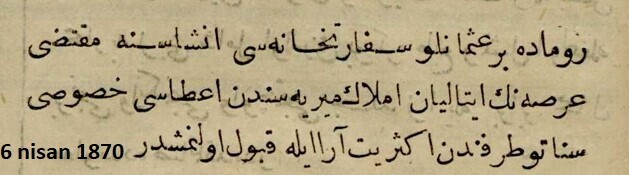 روماده بر عثمانلو سفارتخانه‌سی انشاسنه مقتضی
عرصه‌نك ایتالیان املاك میریه‌سندن اعطاسی خصوصی
سناتو طرفندن اكثریت آرا ایله قبول اولنمشدر
6 nisan 1870